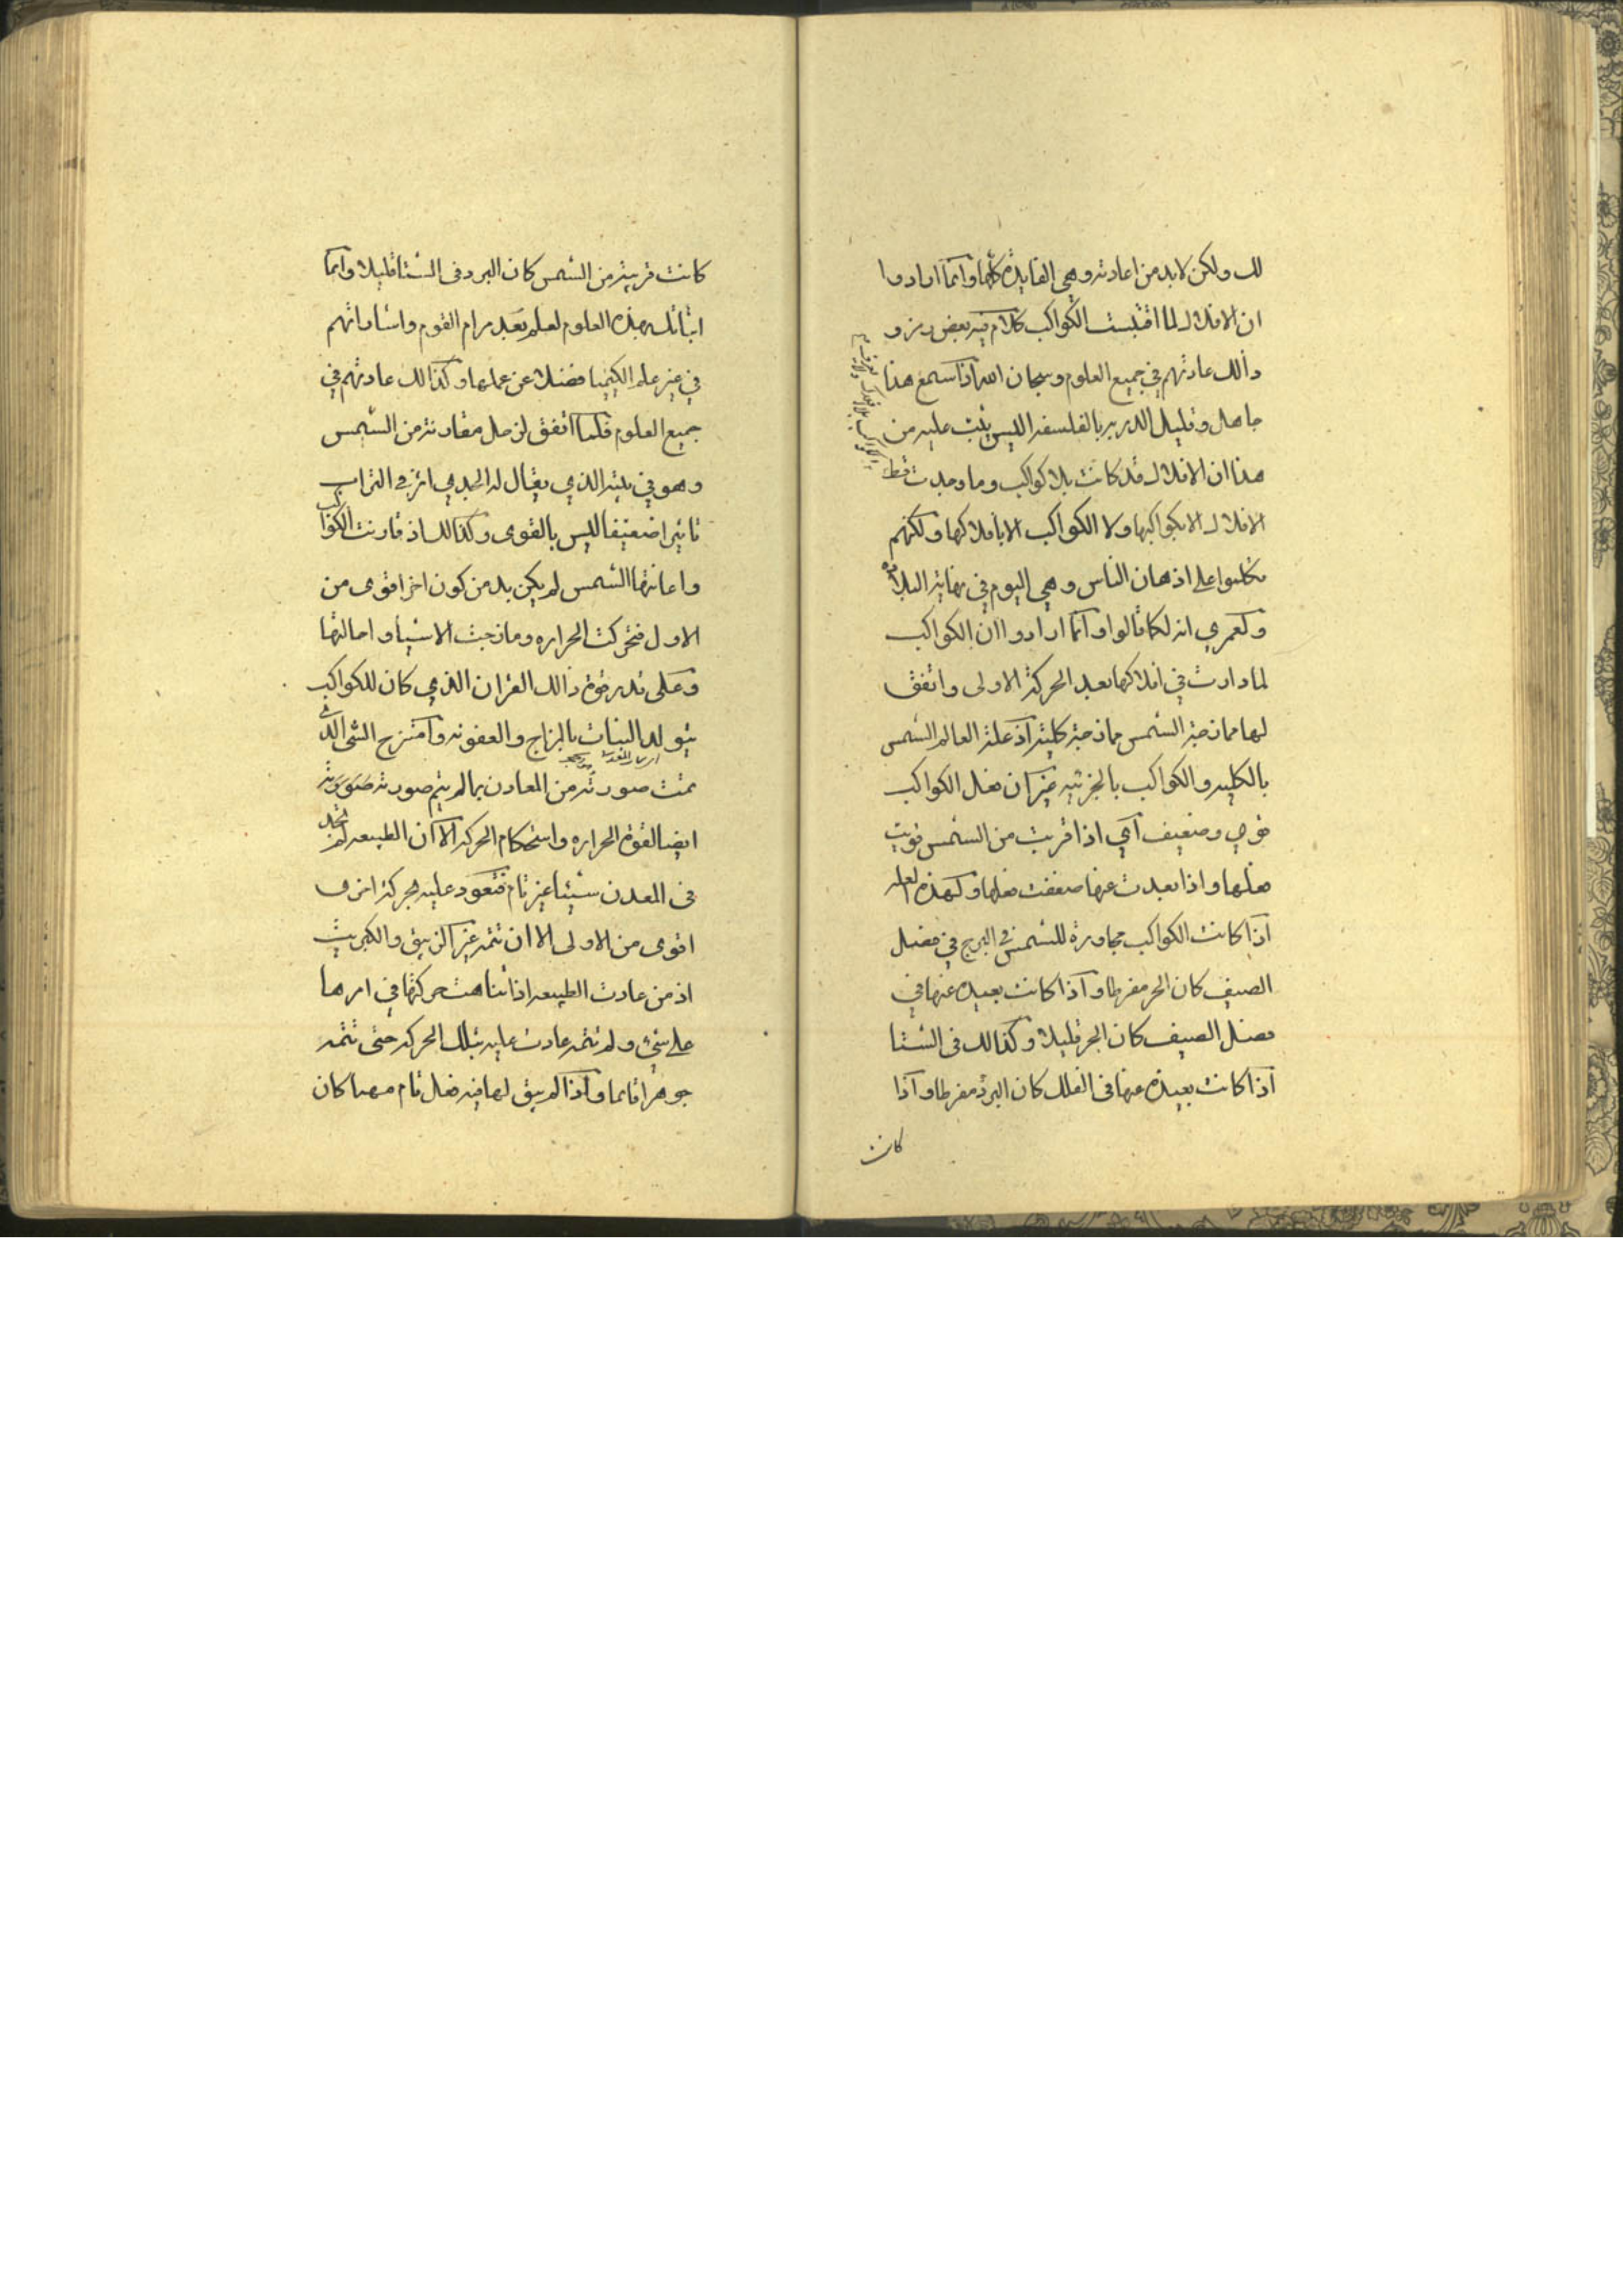 لك ولكن لابد من اعادته وهي الفايده كلها وانما ارادوا
ان الافلاك لما اقتبست الكواكب كلام فيه بعض رمز و
ذالك عادتهم في جميع العلوم وسبحان الله اذا سمع هذا
جاهل وقليل الدربه بالفلسفه اليس يثبت عليه من
هذا ان الافلاك قد كانت بلا كواكب وما وجدت قط
الافلاك الا بكواكبها ولا الكواكب الا بافلاكها ولكنهم
تكلموا على اذهان الناس وهي اليوم في نهاية البلاده
ولعمري انه لكما قالوا وانما ارادوا ان الكواكب
لما دارت في افلاكها بعد الحركة الاولى واتفق
لها ممازجة الشمس ممازجة كلية اذ علة العالم الشمس
بالكليه والكواكب بالجزئيه غير ان فعل الكواكب
قوي وضعيف اي اذا قربت من الشمس قويت
فعلها واذا بعدت عنها ضعفت فعلها ولهذه العله
اذا كانت الكواكب مجاورة للشمس في البرج في فصل
الصيف كان الحر مفرطا واذا كانت بعيده عنها في
فصل الصيف كان الحر قليلا وكذالك في الشتا
اذا كانت بعيده عنها في الفلك كان البرد مفرطا واذا
كانت
كانت قريبة من الشمس كان البرد في الشتا قليلا وانما
اتيانك بهذه العلوم لعلم بعد مرام القوم واشاراتهم
في غير علم الكيميا فضلا عن عملها وكذالك عادتهم في
جميع العلوم فلما اتفق لزحل مقارنة من الشمس
وهو في بيته الذي يقال له الجدي اثر في التراب
تاثيرا ضعيفا ليس بالقوى وكذالك اذ قارنت الكواكب
واعانتها الشمس لم يكن بد من كون اخر اقوى من
الاول فتحركت الحراره ومازجت الاشيا واحالتها
وعلى قدر قوة ذالك القران الذي كان للكواكب
يتولد النبات بالمزاج والعفونه وامتزج الشى الذي
تمت صورته من المعادن بما لم يتم صورته صورته
ايضا لقوة الحراره واستحكام الحركه الا ان الطبيعه لم تجد
في المعدن شيئا غير تام فتعود عليه بحركة اخرى
اقوى من الاولى الا ان تتمه غير الزيبق والكبريت
اذ من عادت الطبيعه اذا تناهت حركتها في امرها
على شيء ولم تتمه عادت عليه بتلك الحركه حتى تتمه
جوهرا قايما واذا لم يبق لها فيه فعل تام مهما كان